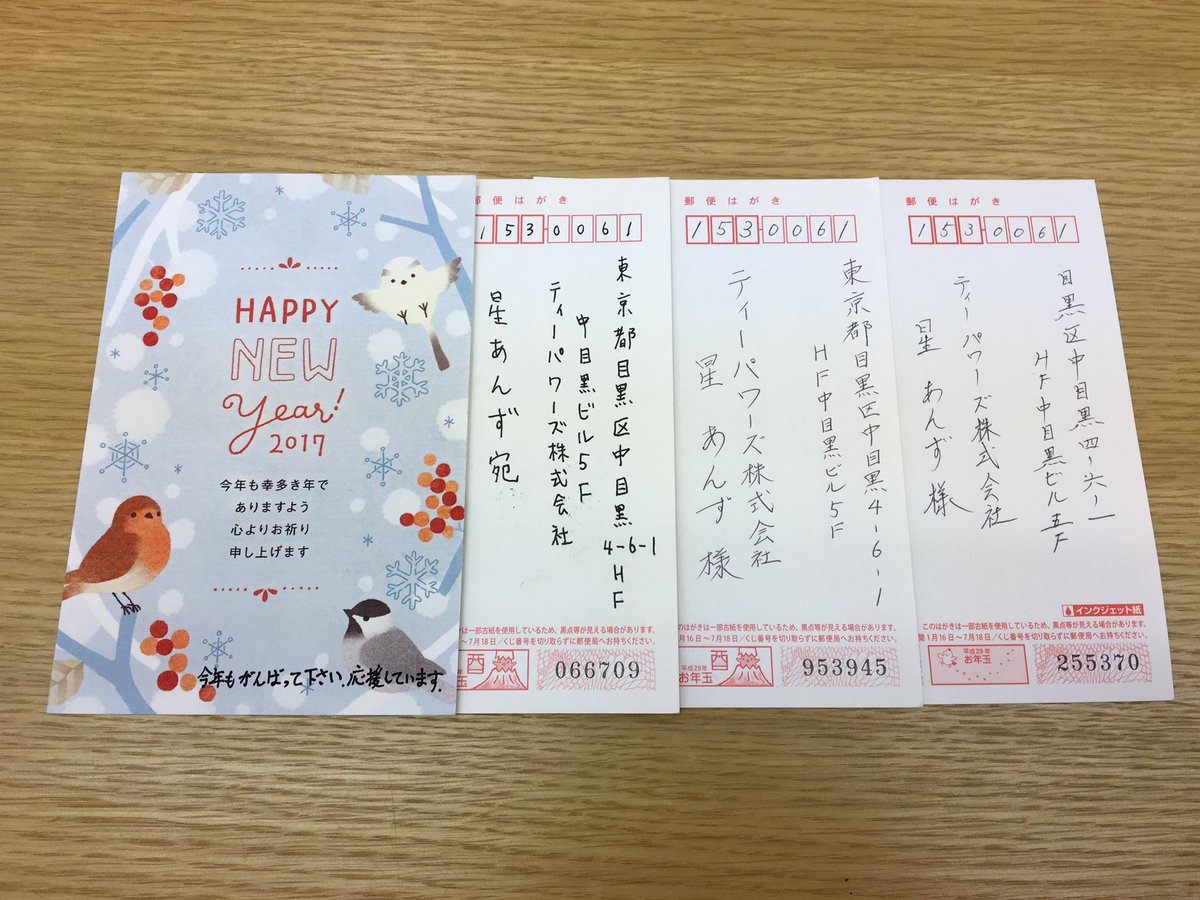 HAPPY
NEW
Year!
2017
今年も幸多き年で
ありますよう
心よりお祈り
申し上げます
今年もがんばって下さい。応援しています。
郵便はがき
1530061
東京都目黒区中目黒
4-6-1
HF
中目黒ビル5F
ティーパワーズ株式会社
星あんず宛
のはがきは一部古紙を使用しているため、黒点等が見える場合があります。
〜7月18日/くじ番号を切り取らずに郵便局へお持ちください。
酉
玉
066709
郵便はがき
1530061
東京都目黒区中目黒4-6-1
HF中目黒ビル5F
ティーパワーズ株式会社
星あんず様
のはがきは一部古紙を使用しているため、黒点等が見える場合があります。
1月16日〜7月18日/くじ番号を切り取らずに郵便局へお持ちください。
平成29年
お年玉
酉
953945
郵便はがき
1530061
目黒区中目黒四-六-一
HF中目黒ビル五F
ティーパワーズ株式会社
星あんず様
インクジェット紙
このはがきは一部古紙を使用しているため、黒点等が見える場合があります。
間1月16日〜7月18日/くじ番号を切り取らずに郵便局へお持ちください。
平成29年
お年玉
255370